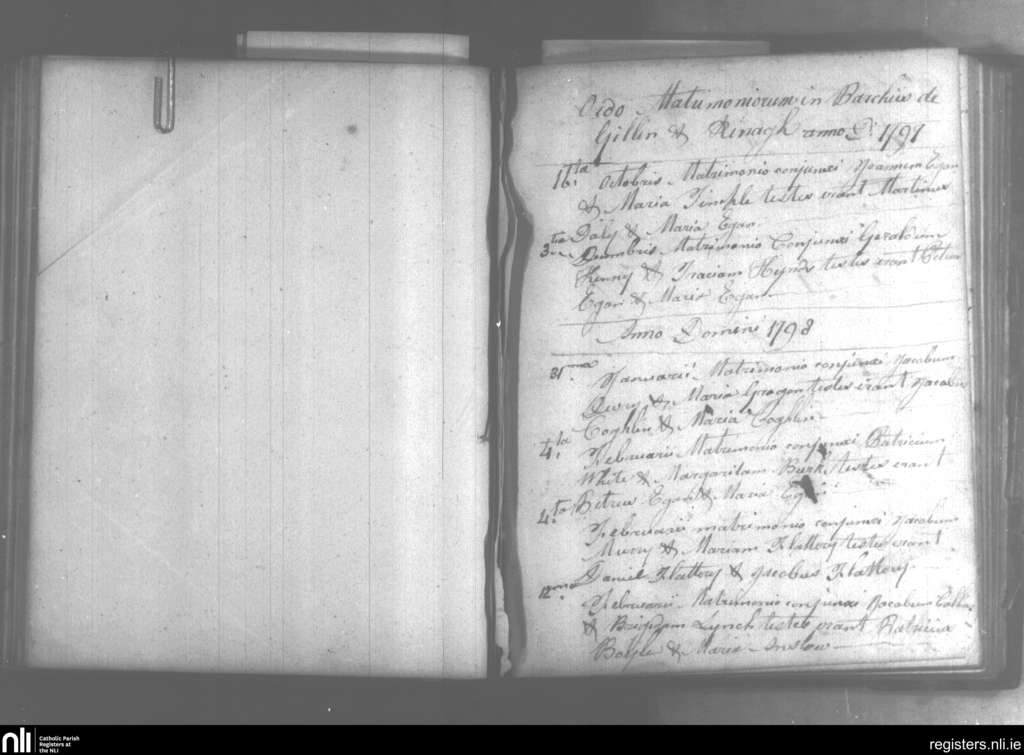 Ordo Matrimoniorum in Parochiis de
Gillin & Rinagh anno D: 1797
16.ta Octobris Matrimonio conjunxi Joannem Egan
& Maria Timple testes erant Martinus
Daly & Maria Egan
3.tia Matrimonio Conjunxi Geraldum
Kenny & Hynds testes erant Petrus
Egan & Maria Egan
Anno Domini 1798
31.ma Januarii Matrimonio conjunxi Jacobum
& Maria testes erant Jacobus
Coghlin & Maria Coghlin
4.ta Februarii Matrimonio conjunxi Patricium
White & Margaritam Burk testes erant
Petrus Egan & Maria Egan
4.ta Februarii matrimonio conjunxi Jacobum
& Mariam Flattery testes erant
Daniel Flattery & Jacobus Flattery
12.ma Februarii Matrimonio conjunxi Jacobum
& Lynch testes erant Patricius
Boyle & Maria
nli
Catholic Parish
Registers at
the NLI
registers.nli.ie